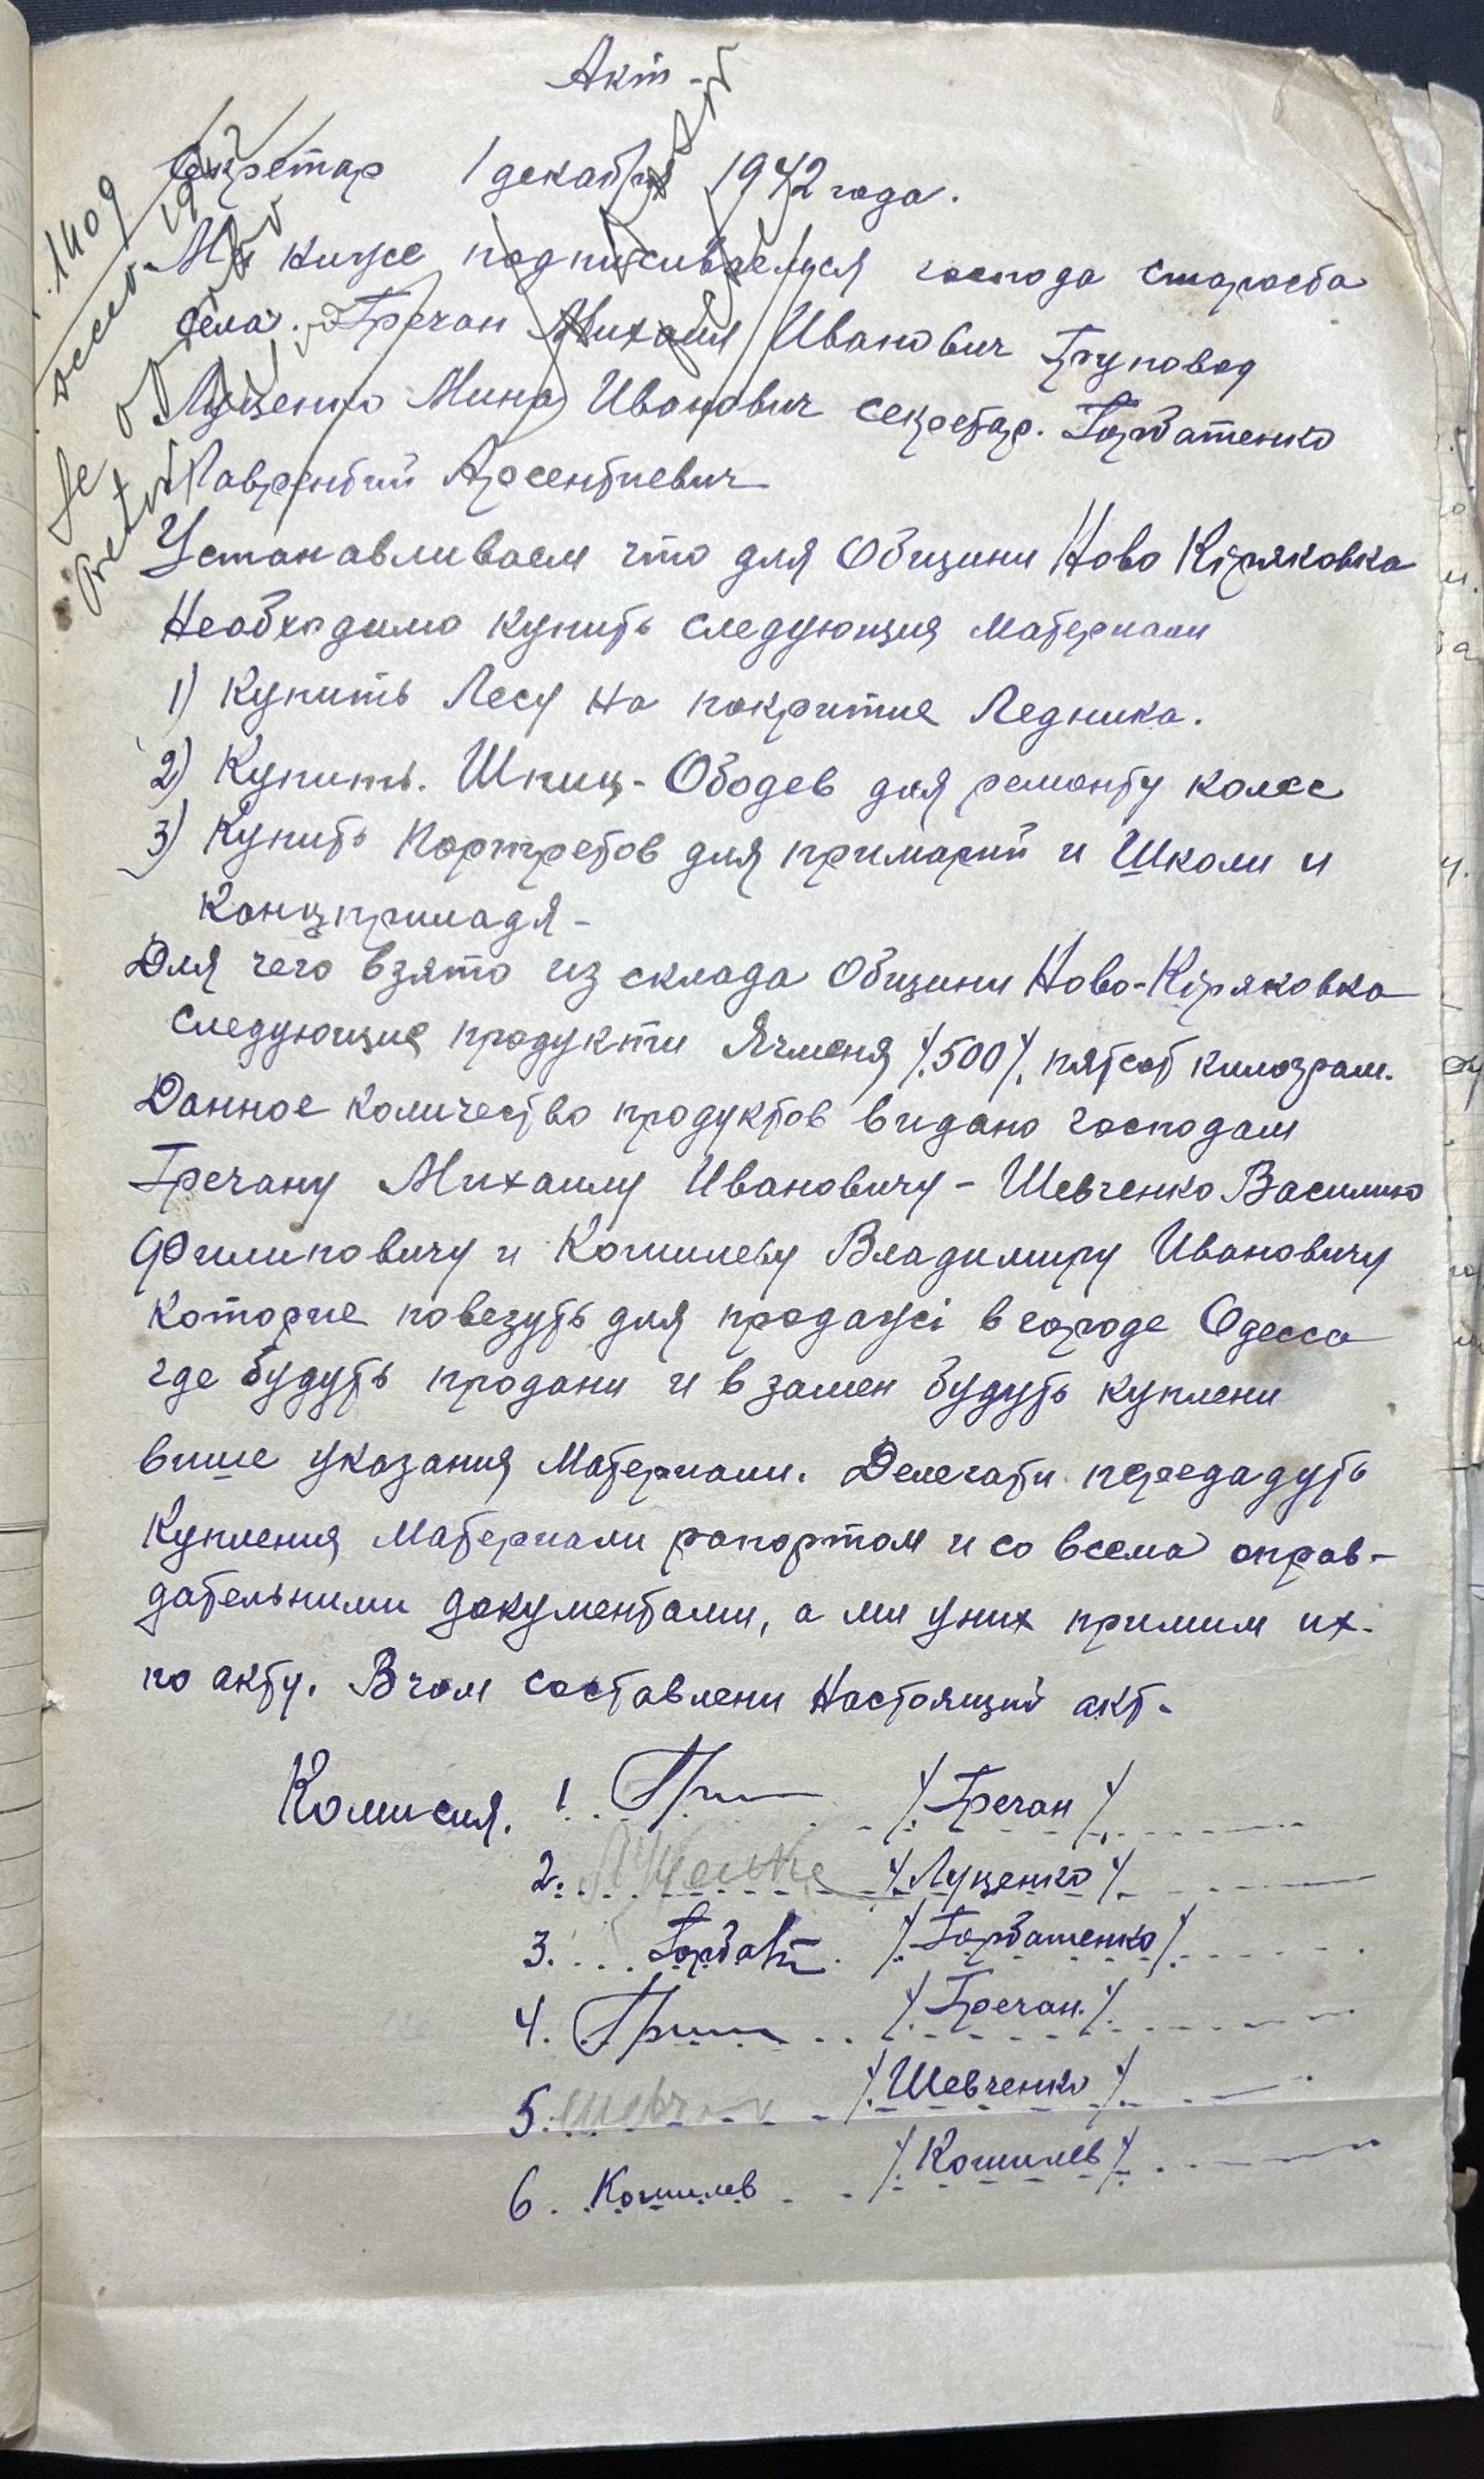 Акт -
Секретар 1 декабря 1942 года.
Ми ниже подписиваемися господа староста
села. Гречан Михаил Иванович Груповод
Луценко Мина Иванович секретар. Горбатенко
Лаврентий Арсентиевич
Устанавливаем что для Общини Ново Кіряковка
Необходимо купить следующия материали
1) Купить Лесу на покритие Ледника.
2) Купить. Шпиц - Ободев для ремонту колес
3) Купить Портретов для примарий и Школи и
Канцприладя -
Для чего взято из склада Общини Ново-Кіряковка
следующие продукти Ячменя /.500/. пятсот килограм.
Данное количество продуктов видано господам
Гречану Михаилу Ивановичу - Шевченко Василию
Филиповичу и Кошилеву Владимиру Ивановичу
которие повезуть для продажі в городе Одесса
где будуть продани и в замен будуть куплени
више указания Материали. Делегати передадуть
Купления Материали рапортом и со всема оправ-
дательними документами, а ми у них примим их.
по акту. В чом составлени Настоящий акт.
Комисия. 1. /.Гречан/.
2. Луценко /.Луценко/.
3. Горбат /.Горбатенко/.
4. /.Гречан./.
5. Шевч /.Шевченко/.
6. Кошилев /.Кошилев/.
1409